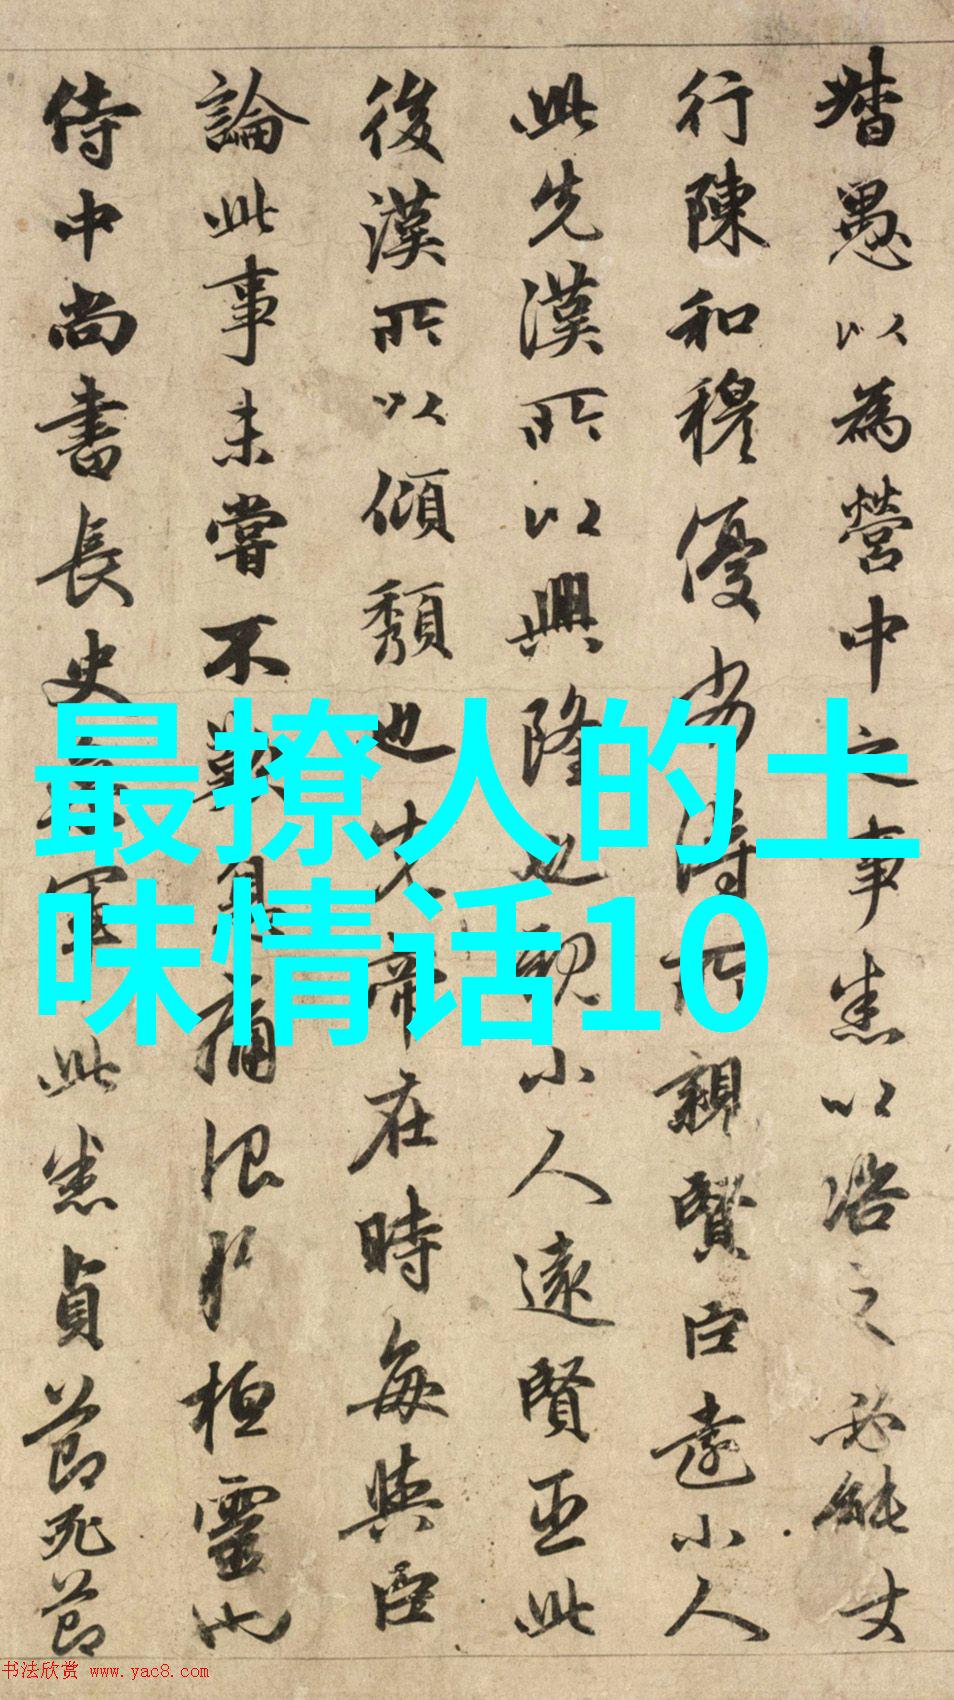 督愚以為營中之事悉以諮之必能丈
行陳和穆優劣得所親賢臣遠小人
此先漢所以興隆也親小人遠賢臣此
後漢所以傾頹也先帝在時每與臣
論此事未嘗不歎息痛恨於桓靈也
侍中尚書長史參軍此悉貞節死節
最撩人的土
味情话10
书法欣赏 www.yac8.com